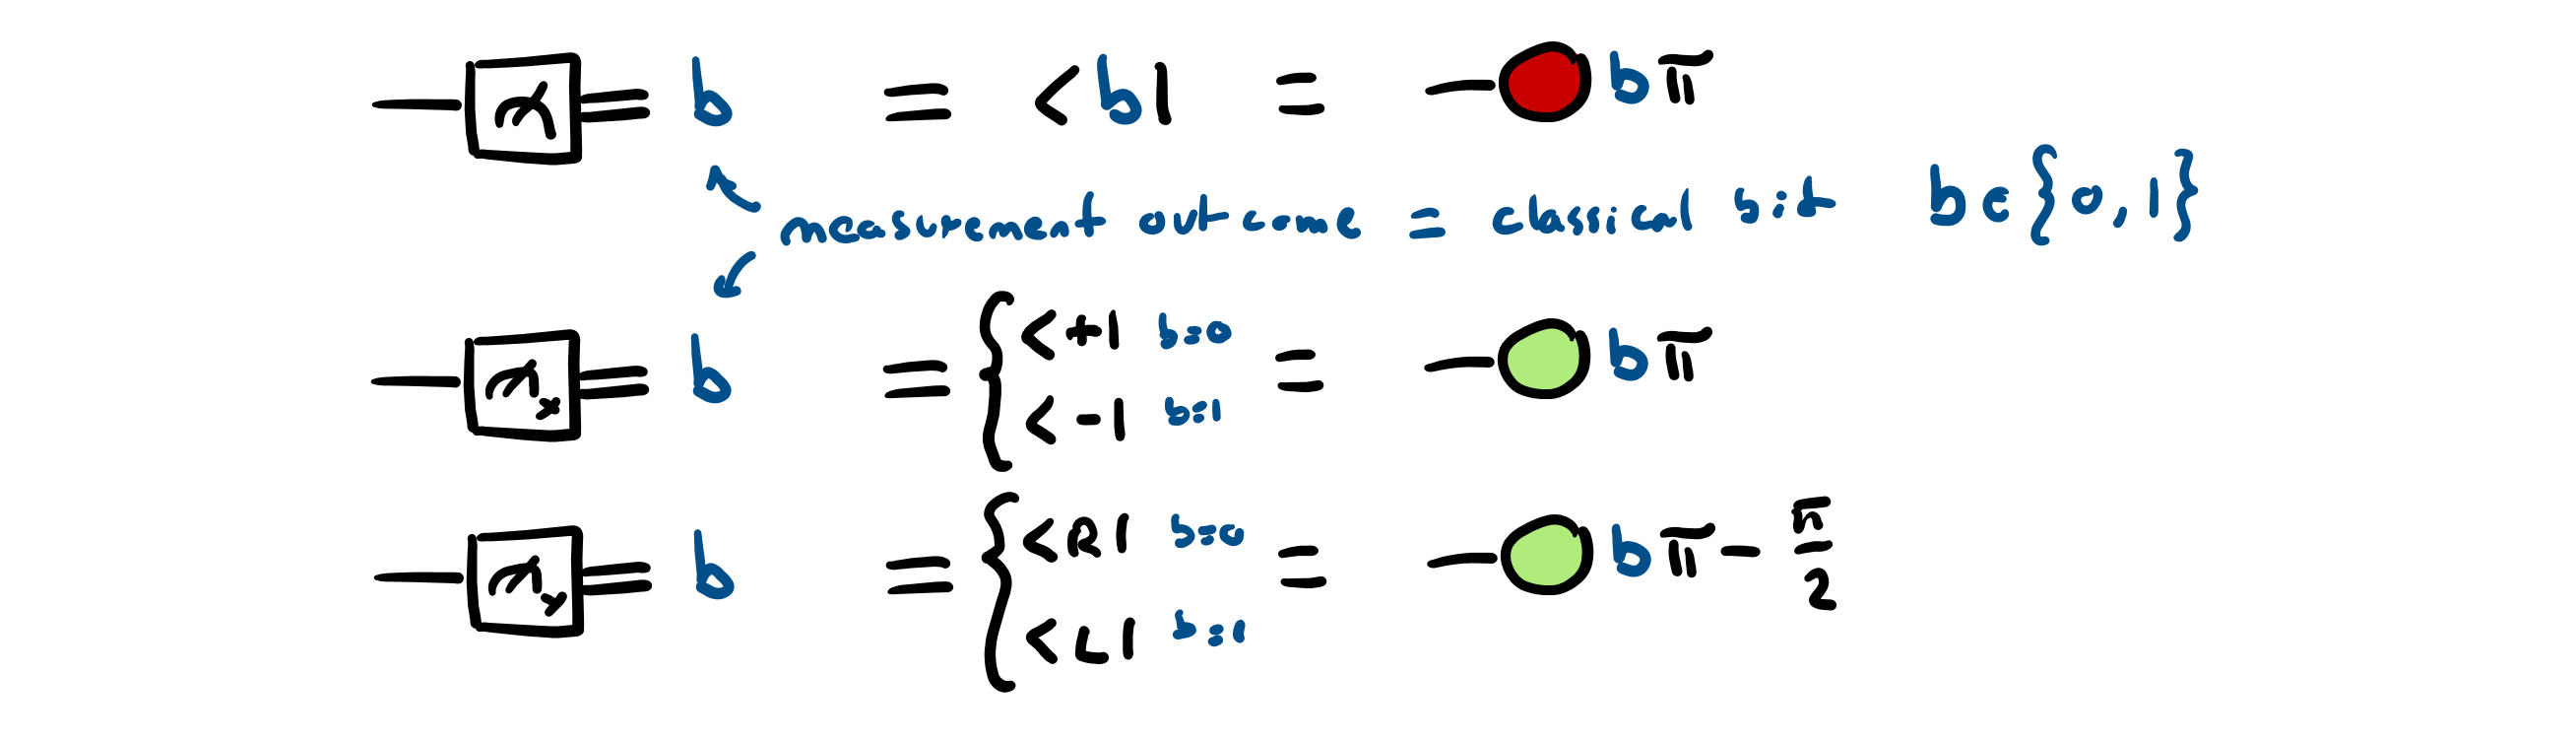 b = <b| = bπ
measurement outcome = classical bit b ∈ {0,1}
x b = { <+| b=0 = bπ
<-| b=1
y b = { <R| b=0 = bπ - π/2
<L| b=1